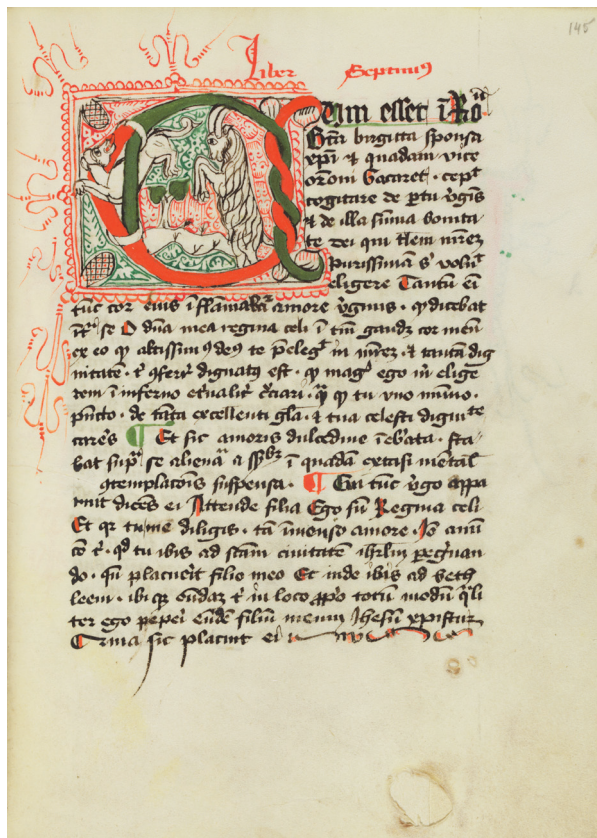 145
Liber Septimus
Cum esset ī Ro
btā birgitta sponsa
xp̄i & quadam vice
or̄oni vacaret · cepᵗ
cogitare de p̱tu v̓gīs
& de illa sūma bonita
te dei qui tlem mr̄em
purissimā s' voluit
eligere Tantū eī
tūc cor eius īflāmabat̉ amore v̓ginis · qp dicebat
īt̉ se O dn̄a mea regina celi ī tm̄ gaudꝫ cor meū
ex eo qp altissimꝰ deus te p̄eleḡ in mr̄em · & tantā dig
nitatē · t' ↄferr̓ dignatꝰ est · qp magꝭ ego m̓ elige
rem ī inferno et̓nalit̓ c̓ciari · qᵃ qp tu vno mīmo ·
pūcto · de tāta excellenti gl̄a · & tua celesti digniᵗᵉ
car̓es ¶ Et sic amoris dulcedine īeb̓ata · sta
bat sup̄ se alienaᵗᵃ a ī quadā extasi mētal̓
ↄtemplacōis suspensa · ¶ Cui tūc v̓go appa
ruit dicēs ei Attende filia Ego sū Regina celi
Et qꝛ tu me diligis · tā īmenso amore · Io anū
co t' · qd tu ibis ad sc̄am ciuitatē ihrl̄m peg̓nan
do · qn̄ placuerit filio meo Et inde ibis ad beth
leem · ibi qꝫ ondaz t' in loco p̱p̓o totū modū qͣli
ter ego pepei eūdē filiū meum Jhesū xp̄istum
Q̄nia sic placuit ei